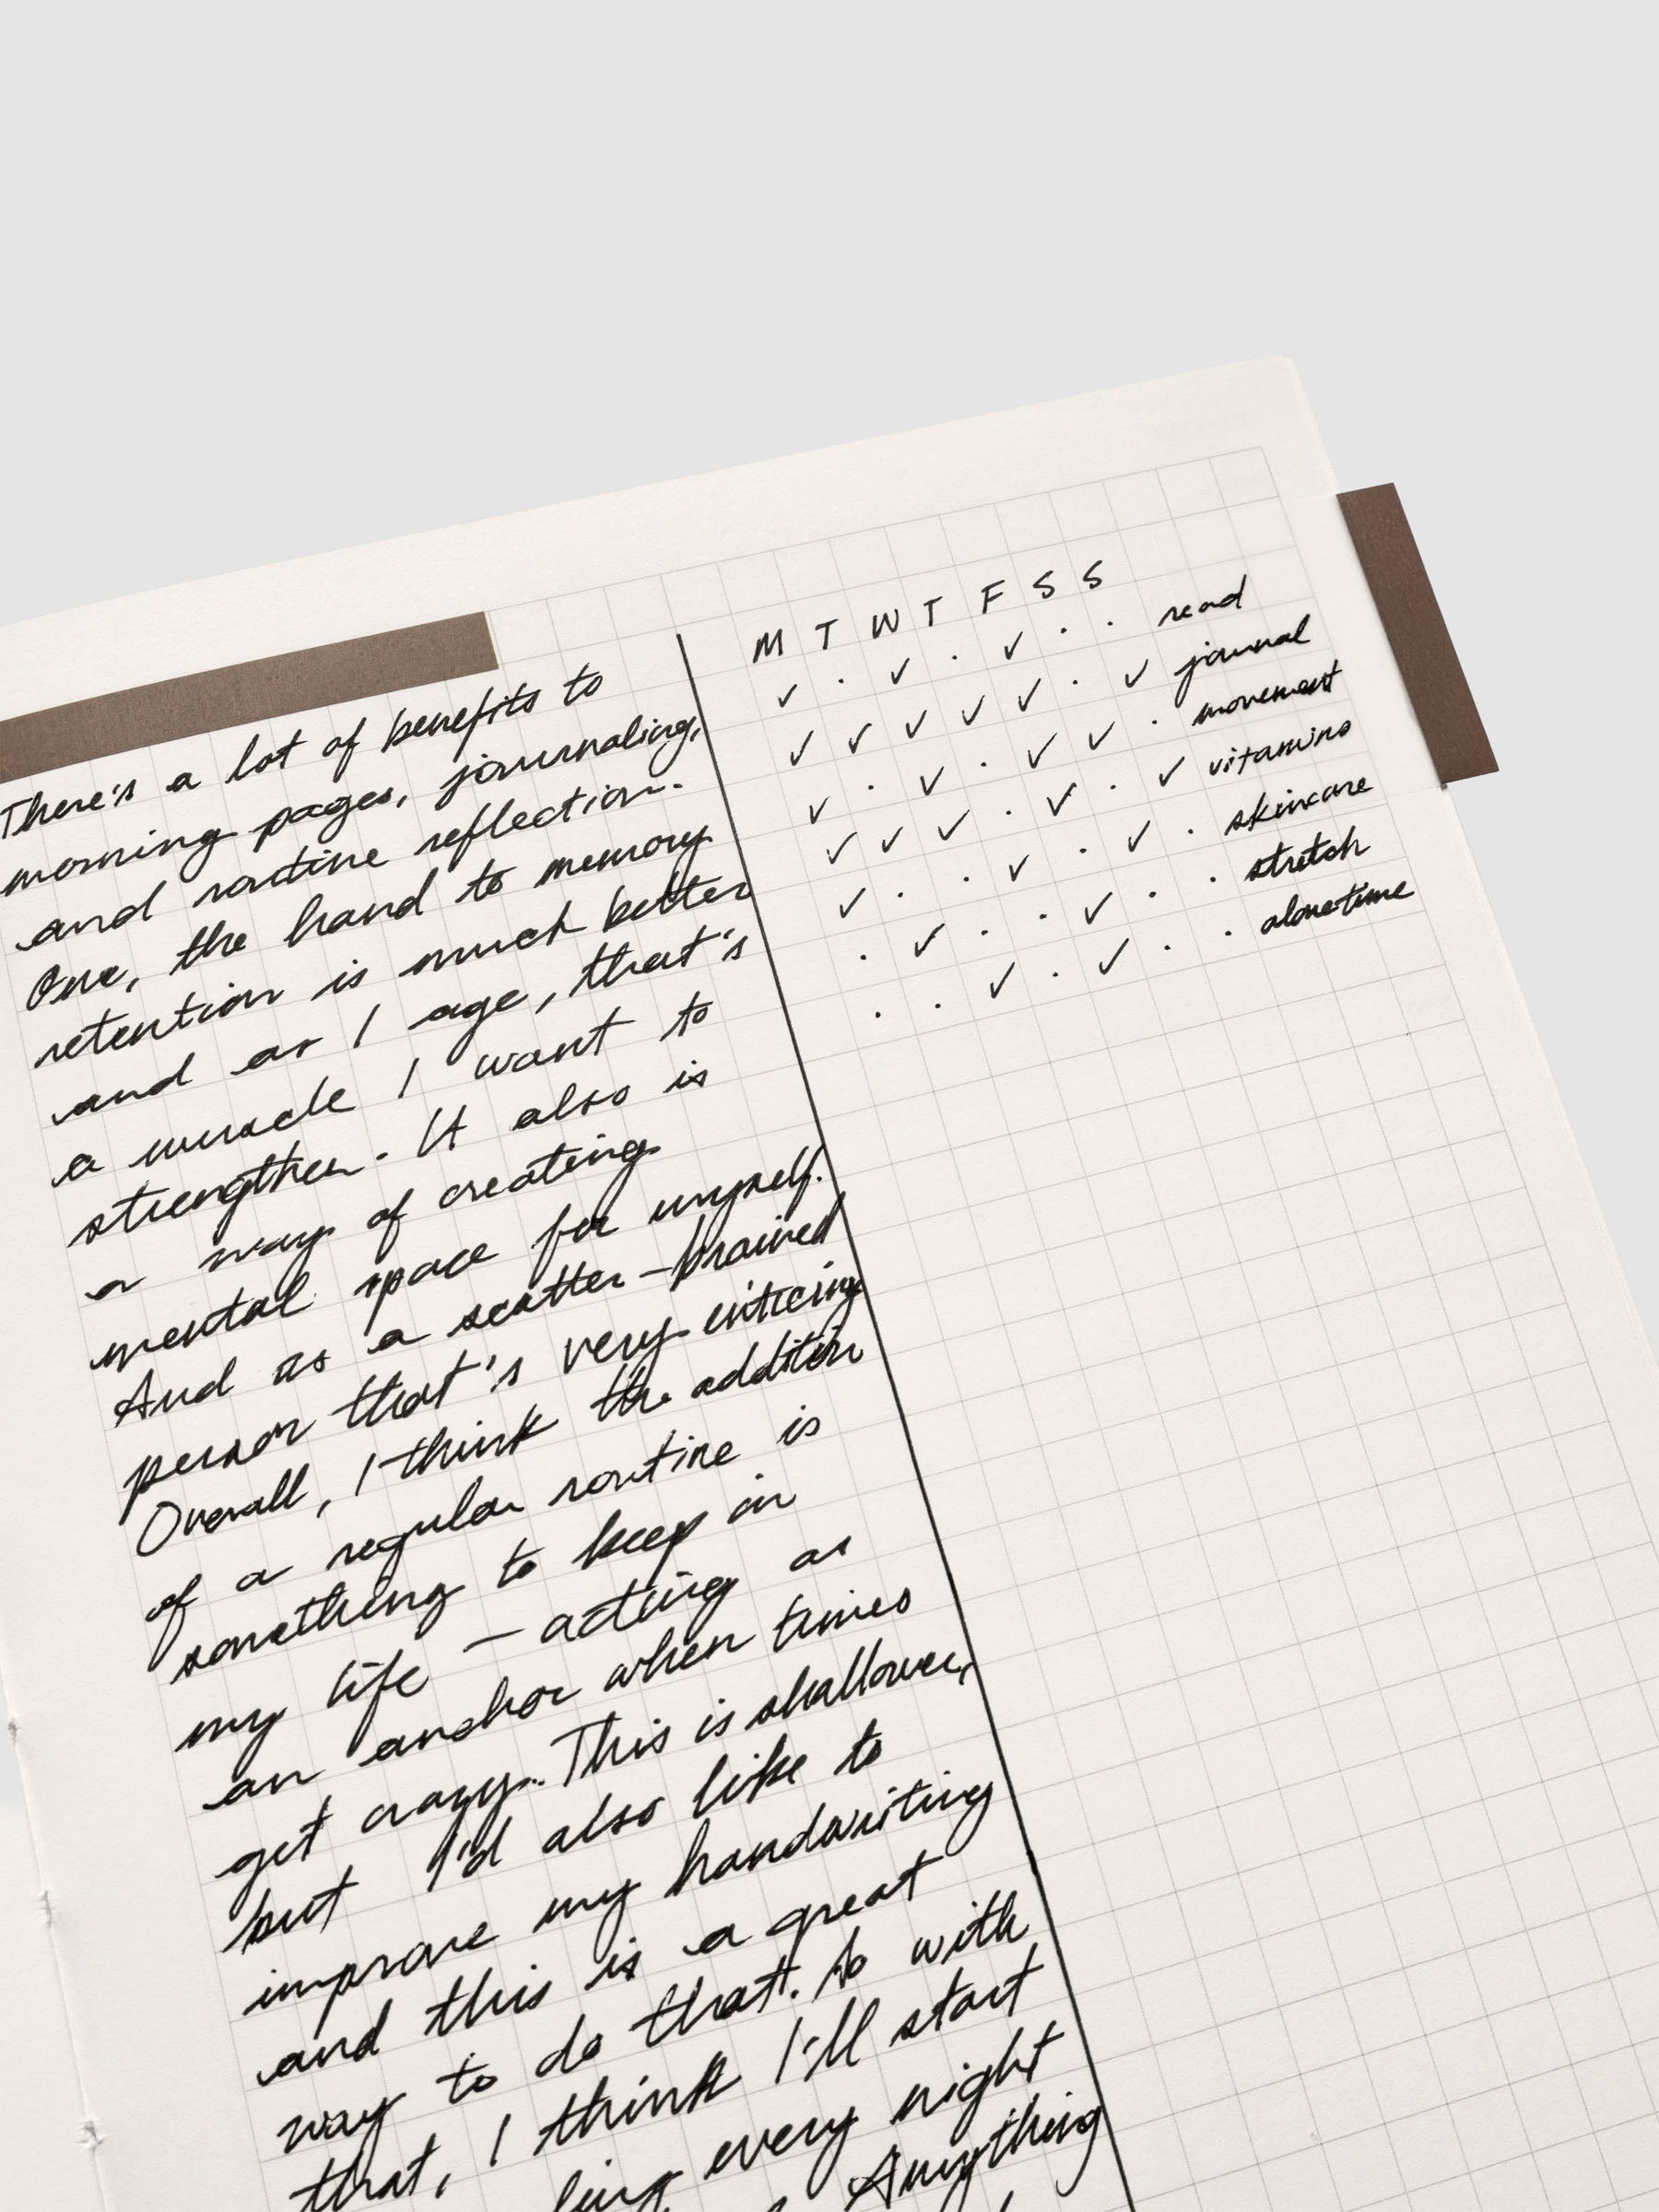 There's a lot of benefits to
morning pages, journaling,
and routine reflection.
One, the hand to memory
retention is much better
and as I age, that's
a muscle I want to
strengthen. It also is
a way of creating
mental space for myself.
And as a scatter-brained
person that's very enticing
Overall, I think the addition
of a regular routine is
something to keep in
my life - acting as
an anchor when times
get crazy. This is shallower,
but I'd also like to
improve my handwriting
and this is a great
way to do that. So with
that, I think I'll start
every night
Anything
M T W T F S S
✓ · ✓ · ✓ · · read
✓ ✓ ✓ ✓ ✓ · ✓ journal
✓ · ✓ · ✓ ✓ · movement
✓ ✓ ✓ · ✓ · ✓ vitamins
✓ · · ✓ · ✓ · skincare
· ✓ · · ✓ · · stretch
· · ✓ · ✓ · · alone time